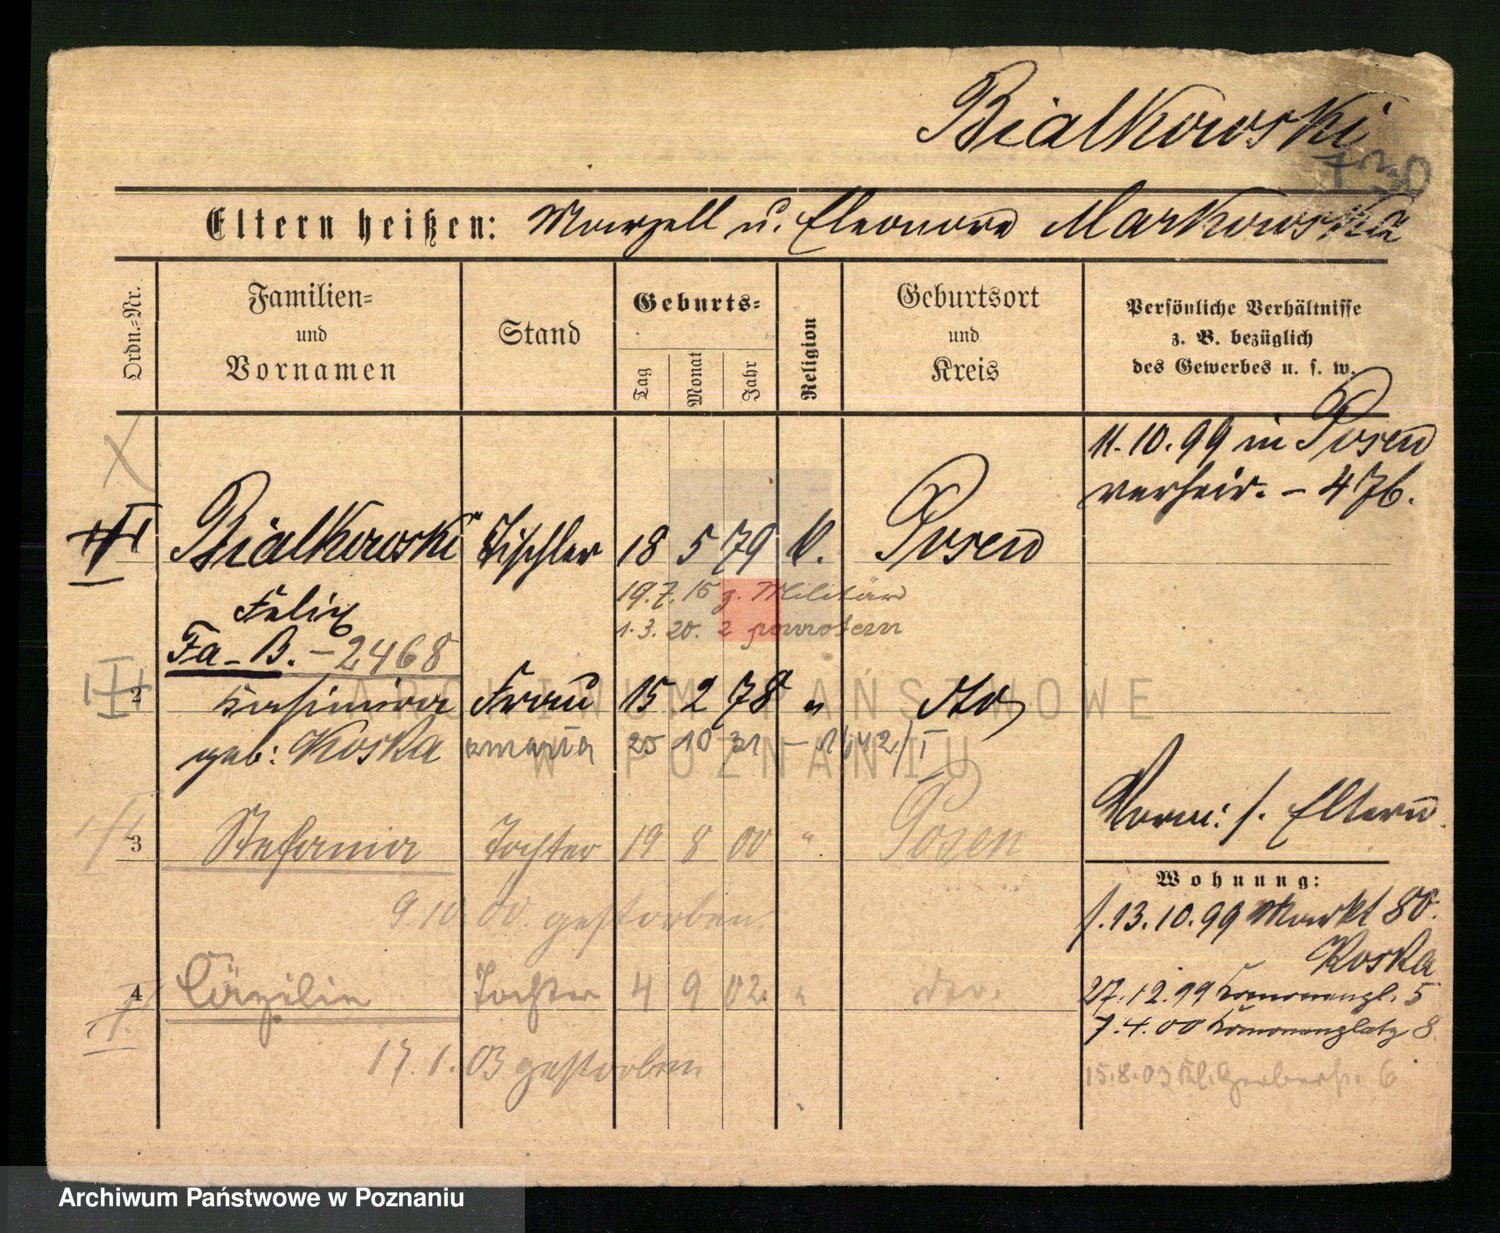 Bialkowski
1730
Eltern heißen: Marzell u. Eleonore Markowska
Ordn.=Nr.
Familien=
und
Vornamen
Stand
Geburts=
Tag
Monat
Jahr
Religion
Geburtsort
und
Kreis
Persönliche Verhältnisse
z. B. bezüglich
des Gewerbes u. s. w.
11.10.99 in Posen
verheir. – 476.
Bialkowski Tischler 18 5 79 k. Posen
Felix
19.7.15 z. Militär
1.3.20. z powrotem
Fa – B. – 2468
2 Kasimira Frau 15 2 78 " dto
geb: Koska zmarła 25 10 31 – 1142/I
Vorm: s. Eltern
3 Stefania Tochter 19 8 00 " Posen
9.10.00 gestorben
Wohnung:
13.10.99 Markt 80.
Koska
4 Cäzilie Tochter 4 9 02. " dto.
27.12.99 5
7.4.00 8
17.1.03 gestorben
15.8.03 Kl. Gerberstr. 6
ARCHIWUM PAŃSTWOWE
W POZNANIU
Archiwum Państwowe w Poznaniu